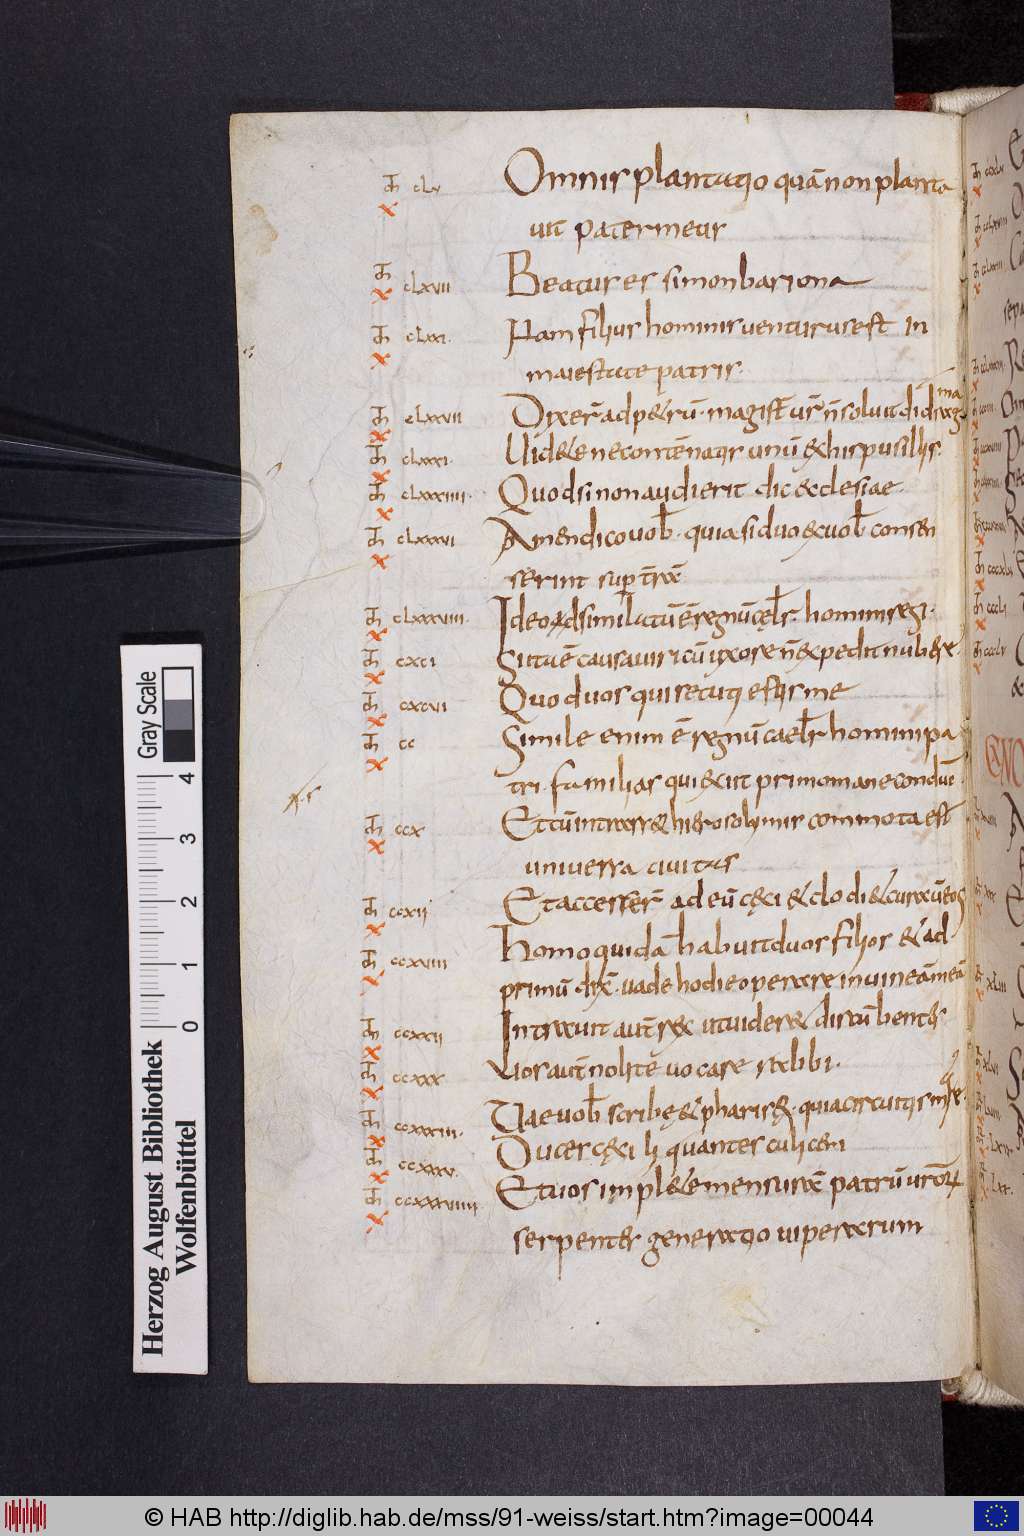 clv Omnis plantatio quā non planta
vit pater meus
x
clxvii Beatus es simon bariona
x
clxxi. Nam filius hominis venturus est in
x maiestate patris.
clxxvii Dixer̄ ad petrū. magist̄ vr̄ n̄ soluit didragma
x
clxxxi. Uidete ne contēnatis unū ex his pusillis.
x
clxxxiiii. Quod si non audierit dic ecclesiae.
x
clxxxvi Amen dico vob̄. quia si duo ex vob̄ consen
x serint sup̄ terrā
clxxxviii. Ideo adsimilatū ē regnū cęl̄r homini regi.
x
cxci Si ita ē causa viri cū uxore n̄ expedit nubere.
x
cxcvi Quod vos qui secuti estis me
x
cc Simile enim ē regnū cael̄r homini pa
x tri familias qui exiit primo mane conduc̄.
ccx Et cū intrasset hierosolymis commota est
x universa civitas
ccxii Et accesser̄ ad eū cęci et clodi et curavit eos
x
ccxviiii Homo quidā habuit duos filios et ad
x primū dix̄. vade hodie operare in vineā meā
ccxxii Intravit aut̄ rex ut videret discūbentes
x
ccxxx Vos aut̄ nolite vocare rabbi.
x
ccxxxiii. Vae vob̄ scribę et pharisęi. quia circuitis mare.
x
ccxxxv. Duces cęci liquantes culicem
x
ccxxxviiii Et vos implete mensurā patrū vrōrum
x serpentes generatio viperarum
Gray Scale
0 1 2 3 4
Herzog August Bibliothek
Wolfenbüttel
© HAB http://diglib.hab.de/mss/91-weiss/start.htm?image=00044